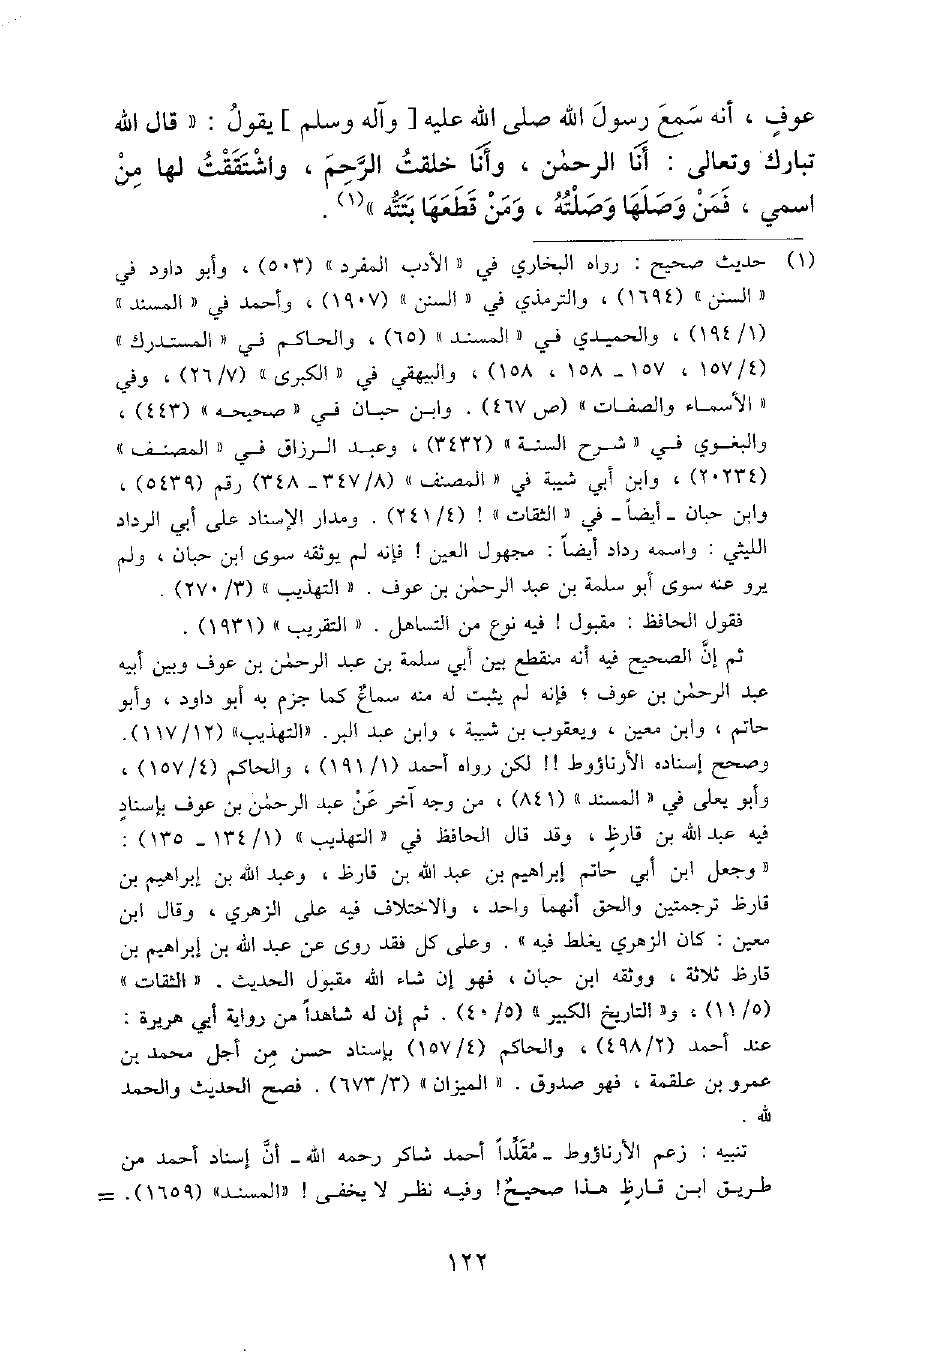 عوفٍ ، أنه سَمِعَ رسولَ الله صلى الله عليه [ وآله وسلم ] يقولُ : « قال الله
تبارك وتعالى : أَنَا الرحمٰن ، وأَنَا خلقتُ الرَّحِمَ ، واشْتَقَقْتُ لها مِنْ
اسمي ، فَمَنْ وَصَلَهَا وَصَلْتُهُ ، وَمَنْ قَطَعَهَا بَتَتُّه »(١) .
(١) حديث صحيح : رواه البخاري في « الأدب المفرد » (٥٠٣) ، وأبو داود في
« السنن » (١٦٩٤) ، والترمذي في « السنن » (١٩٠٧) ، وأحمد في « المسند »
(١/ ١٩٤) ، والحميدي في « المسند » (٦٥) ، والحاكم في « المستدرك »
(٤/ ١٥٧ ، ١٥٧ ـ ١٥٨ ، ١٥٨) ، والبيهقي في « الكبرى » (٧/ ٢٦) ، وفي
« الأسماء والصفات » (ص ٤٦٧) . وابن حبان في « صحيحه » (٤٤٣) ،
والبغوي في « شرح السنة » (٣٤٣٢) ، وعبد الرزاق في « المصنف »
(٢٠٢٣٤) ، وابن أبي شيبة في « المصنف » (٨/ ٣٤٧ ـ ٣٤٨) رقم (٥٤٣٩) ،
وابن حبان ـ أيضاً ـ في « الثقات » ! (٤/ ٢٤١) . ومدار الإسناد على أبي الرداد
الليثي : واسمه رداد أيضاً : مجهول العين ! فإنه لم يوثقه سوى ابن حبان ، ولم
يرو عنه سوى أبو سلمة بن عبد الرحمٰن بن عوف . « التهذيب » (٣/ ٢٧٠) .
فقول الحافظ : مقبول ! فيه نوع من التساهل . « التقريب » (١٩٣١) .
ثم إنَّ الصحيح فيه أنه منقطع بين أبي سلمة بن عبد الرحمٰن بن عوف وبين أبيه
عبد الرحمٰن بن عوف ؛ فإنه لم يثبت له منه سماعٌ كما جزم به أبو داود ، وأبو
حاتم ، وابن معين ، ويعقوب بن شيبة ، وابن عبد البر . «التهذيب» (١٢/ ١١٧).
وصحح إسناده الأرناؤوط !! لكن رواه أحمد (١/ ١٩١) ، والحاكم (٤/ ١٥٧) ،
وأبو يعلى في « المسند » (٨٤١) ، من وجه آخر عَنْ عبد الرحمٰن بن عوف بإسنادٍ
فيه عبد الله بن قارظٍ ، وقد قال الحافظ في « التهذيب » (١/ ١٣٤ ـ ١٣٥) :
« وجعل ابن أبي حاتم إبراهيم بن عبد الله بن قارظ ، وعبد الله بن إبراهيم بن
قارظ ترجمتين والحق أنهما واحد ، والاختلاف فيه على الزهري ، وقال ابن
معين : كان الزهري يغلط فيه » . وعلى كل فقد روى عن عبد الله بن إبراهيم بن
قارظ ثلاثة ، ووثقه ابن حبان ، فهو إن شاء الله مقبول الحديث . « الثقات »
(٥/ ١١) ، و« التاريخ الكبير » (٥/ ٤٠) . ثم إن له شاهداً من رواية أبي هريرة :
عند أحمد (٢/ ٤٩٨) ، والحاكم (٤/ ١٥٧) بإسناد حسن مِن أجل محمد بن
عمرو بن علقمة ، فهو صدوق . « الميزان » (٣/ ٦٧٣) . فصح الحديث والحمد
لله .
تنبيه : زعم الأرناؤوط ـ مُقَلِّداً أحمد شاكر رحمه الله ـ أنَّ إسناد أحمد من
طريق ابن قارظٍ هذا صحيحٌ! وفيه نظر لا يخفى ! «المسند» (١٦٥٩). =
١٢٢